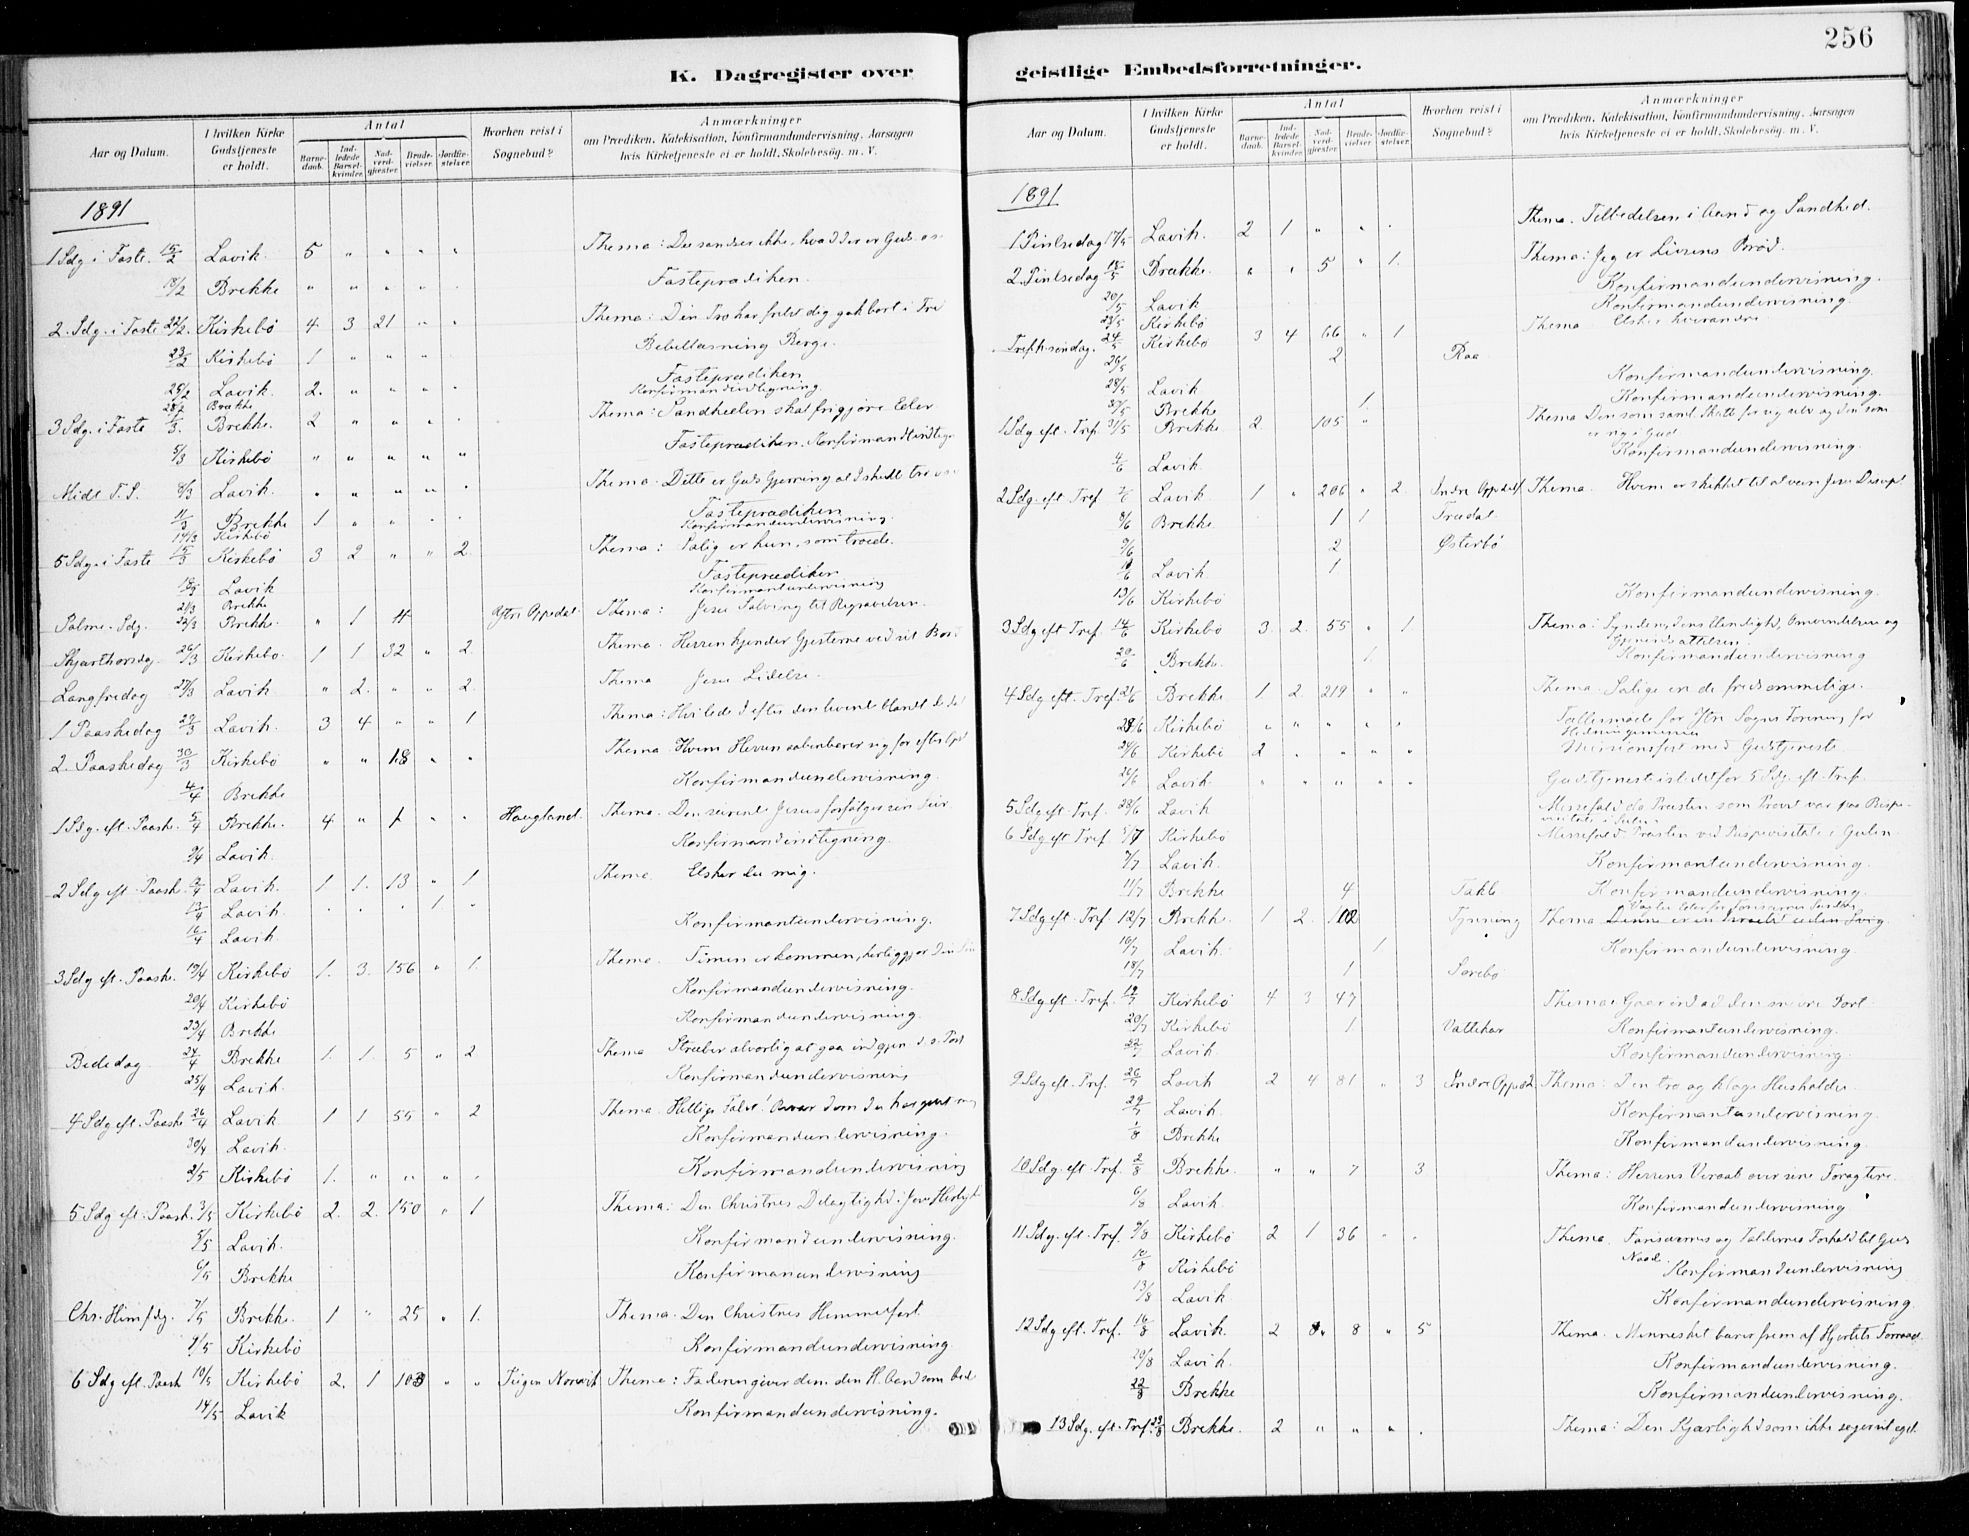 256
K. Dagregister over
Aar og Datum.
I hvilken Kirke Gudstjeneste er holdt.
Antal
Barnedaab.
Indledede Barselkvinder.
Nadverdgjæster.
Brudevielser.
Jordfæstelser.
Hvorhen reist i Sognebud?
Anmærkninger
om Prædiken, Katekisation, Konfirmandundervisning, Aarsagen
hvis Kirketjeneste ei er holdt, Skolebesøg, m. V.
1891
1 Sdg i Faste 15/2 Lavik. 5 " " " " Thema: Du sandser ikke, hvad der er Guds
18/2 Brekke " " " " " Fasteprædiken.
2. Sdg. i Faste 22/2 Kirkebö 4 3 21 " " Thema: Din Tro har frelst dig gak bort i Fre
23/2 Kirkebö 1 " " " Bibellæsning Berge.
25/2 Lavik 2. " " " " Fasteprædiken
28/2 Brekke Konfirmandindtegning.
3 Sdg. i Faste 1/3. Brekke. 2 " " " " Thema: Sandheden skal frigjøre Eder
5/3 Kirkebö " " " " " Fasteprædiken. Konfirmandindtegn
Midt F. S. 8/3 Lavik. " " " " " Thema. Dette er Guds Gjerning at I skulle tro
11/3 Brekke 1 " " " " Fasteprædiken
14/3 Kirkebö Konfirmandundervisning.
5 Sdg. i Faste 15/3 Kirkebö 3 2 " " 2 Thema: Salig er hun, som troede.
18/3 Lavik Fasteprædiken
21/3 Brekke Konfirmantundervisning
Palme-Sdg. 22/3 Brekke. " 1 4 Ytre Oppedal. Thema: Jesu Salving til Begravelsen.
Skjærthorsdag. 26/3 Kirkebö. 1 1 32 " 2 Thema. Herren kjender Gjesterne ved sit Bord
Langfredag 27/3 Lavik " 2. " " 2. Thema Jesu Lidelse.
1 Paaskedag 29/3 Lavik. 3 4 " " 1 Thema: Hvi lede I efter den levende blandt de dø
2. Paaskedag 30/3 Kirkebö " " 18 " " Thema. Hvem Herren aabenbarer sig for efter
4/4 Brekke Konfirmandundervisning.
1 Sdg. eft. Paask. 5/4 Brekke. 4 " 1 " " Haugland. Thema. Den seirende Jesus forfølger sin Seir.
9/4 Lavik. Konfirmandindtegning.
2 Sdg eft. Paask. Lavik. 1 1. 13 " 1 Thema. Elsker du mig.
13/4 Lavik. . . . 1 "
16/4 Lavik Konfirmantundervisning.
3 Sdg eft. Paask. 19/4 Kirkebö 1. 3. 156 " 1. Thema. Timen er kommen, herliggjør din Søn
20/4 Kirkebö Konfirmandundervisning.
23/4 Brekke Konfirmandundervisning.
Bededag. 24/4 Brekke 1. 1. 5 " 2 Thema Stræber alvorlig at gaa ind gjen. d. s. Port
25/4 Lavik. Konfirmandundervisning
4 Sdg eft. Paask 26/4 Lavik 1 1. 55 " 2 Thema. Hellige Fader! Bevar dem du har givet mig
30/4 Lavik. Konfirmandundervisning.
2/5 Kirkebö 1. " " " " Konfirmandundervisning
5 Sdg eft. Paask. 3/5 Kirkebö 2. 2. 150 " 1 Thema: Den Christnes Delagtighed i Jesu Herligh
5/5 Lavik. Konfirmandundervisning.
6/5 Brekke Konfirmandundervisning
Chr. Himf dg. 7/5 Brekke. 1 " 25 " 1. Thema. Den Christnes Himmelfart.
9/5 Kirkebö Konfirmandundervisning.
6 Sdg eft. Paask 10/5 Kirkebö 2. 1 103 " " Thema: Faderen giver dem den H. Aand som bede
14/5 Lavik Konfirmandundervisning.
geistlige Embedsforretninger.
Aar og Datum.
I hvilken Kirke Gudstjeneste er holdt.
Antal
Barnedaab.
Indledede Barselkvinder.
Nadverdgjæster.
Brudevielser.
Jordfæstelser.
Hvorhen reist i Sognebud?
Anmærkninger
om Prædiken, Katekisation, Konfirmandundervisning, Aarsagen
hvis Kirketjeneste ei er holdt, Skolebesøg, m. V.
1891
1 Pintsedag 17/5 Lavik. 2 1 " " . Thema. Tilbedelsen i Aand og Sandhed.
2. Pintsedag 18/5 Brekke. " " 5 " 1. Thema: Jeg er Livsens Brød.
20/5 Lavik Konfirmandundervisning.
23/5 Kirkebö Konfirmandundervisning.
Trefk. søndag. 24/5 Kirkebö 3 4 66 " 1 Thema Elsker hverandre
26/5 2 Raa
28/5 Lavik Konfirmandundervisning.
30/5 Brekke 1 Konfirmandundervisning.
1 Sdg eft. Tref. 31/5 Brekke 2. 105 " Thema Den som saml. Skatte for sig selv og den som er rig i Gud
4/6 Lavik. Konfirmandundervisning.
2 Sdg. eft Tref 7/6 Lavik. 1 " 206 " 2. Indre Oppedal Thema. Hvem er skikket til at være Jesu Discipel
8/6 Brekke. 1 1 Tredal
9/6 2 Østerbö
Lavik. 1
13/6 Kirkebö Konfirmandundervisning.
3 Sdg eft Tref. 14/6 Kirkebö 3. 2. 55 " 1 Thema: Syndens Elendighed, Omvendelsen og
20/6 Brekke. 1 Konfirmandundervisning
4 Sdg. eft. Tref. 21/6 Brekke 1. 2. 219 " " Thema. Salige ere de fredsommelige.
23/6 Kirkebö " " " " " Fællesmøde for Ytre Sogns Forening for Hedningemission
24/6 Kirkebö 2 . " " " Missionsfest med Gudstjeneste
26/6 Lavik. " " " " " Gudstjeneste istedetfor 5 Sdg. eft. Tref.
5 Sdg eft. Tref. 28/6 Lavik Messefald da Præsten som Provst var paa Bispevisitats i Gulen
6 Sdg eft. Tref. 5/7 Kirkebö Messefald. Præsten ved Bispevisitats i Gulen
9/7 Lavik. Konfirmantundervisning
11/7 Brekke 4 Takle Konfirmandundervisning.
7 Sdg eft. Tref. 12/7 Brekke. 1 2. 102 Tynning Thema. Vogter Eder for Farisæernes Surdeig
16/7 Lavik. 1 Konfirmandundervisning.
18/7 1 Sørebö
8 Sdg eft. Tref. 19/7 Kirkebö 4 3 47 Thema: Gaar ind ad den snevre Port
20/7 Kirkebö 1 Vattekar Konfirmantundervisning.
22/7 Lavik. Konfirmandundervisning.
9 Sdg eft. Tref. 26/7 Lavik 2 4 81 " 3 Indre Opped. Thema: Den tro og kloge Husholder
29/7 Lavik. Konfirmantundervisning.
1/8 Brekke Konfirmandundervisning.
10 Sdg. eft. Tref. 2/8 Brekke. " " 7 3 Thema: Herrens Veraab over sine Foragtere.
6/8 Lavik. Konfirmandundervisning.
11 Sdg. eft. Tref. 9/8 Kirkebö 2 1 36 " . Thema. Farisæernes og Tolderens Forhold til Guds Naade.
10/8 Kirkebö Konfirmandundervisning
13/8 Lavik. Konfirmandundervisning.
12 Sdg eft. Tref. 16/8 Lavik. 2 " 8 " 5 Thema. Mennesket bærer frem af Hjertets Forraad.
20/8 Lavik. Konfirmandundervisning.
22/8 Brekke Konfirmandundervisning.
13 Sdg. eft. Tref. 23/8 Brekke. 2 " " " . Thema: Den Kjærlighed som ikke søger sit eget.